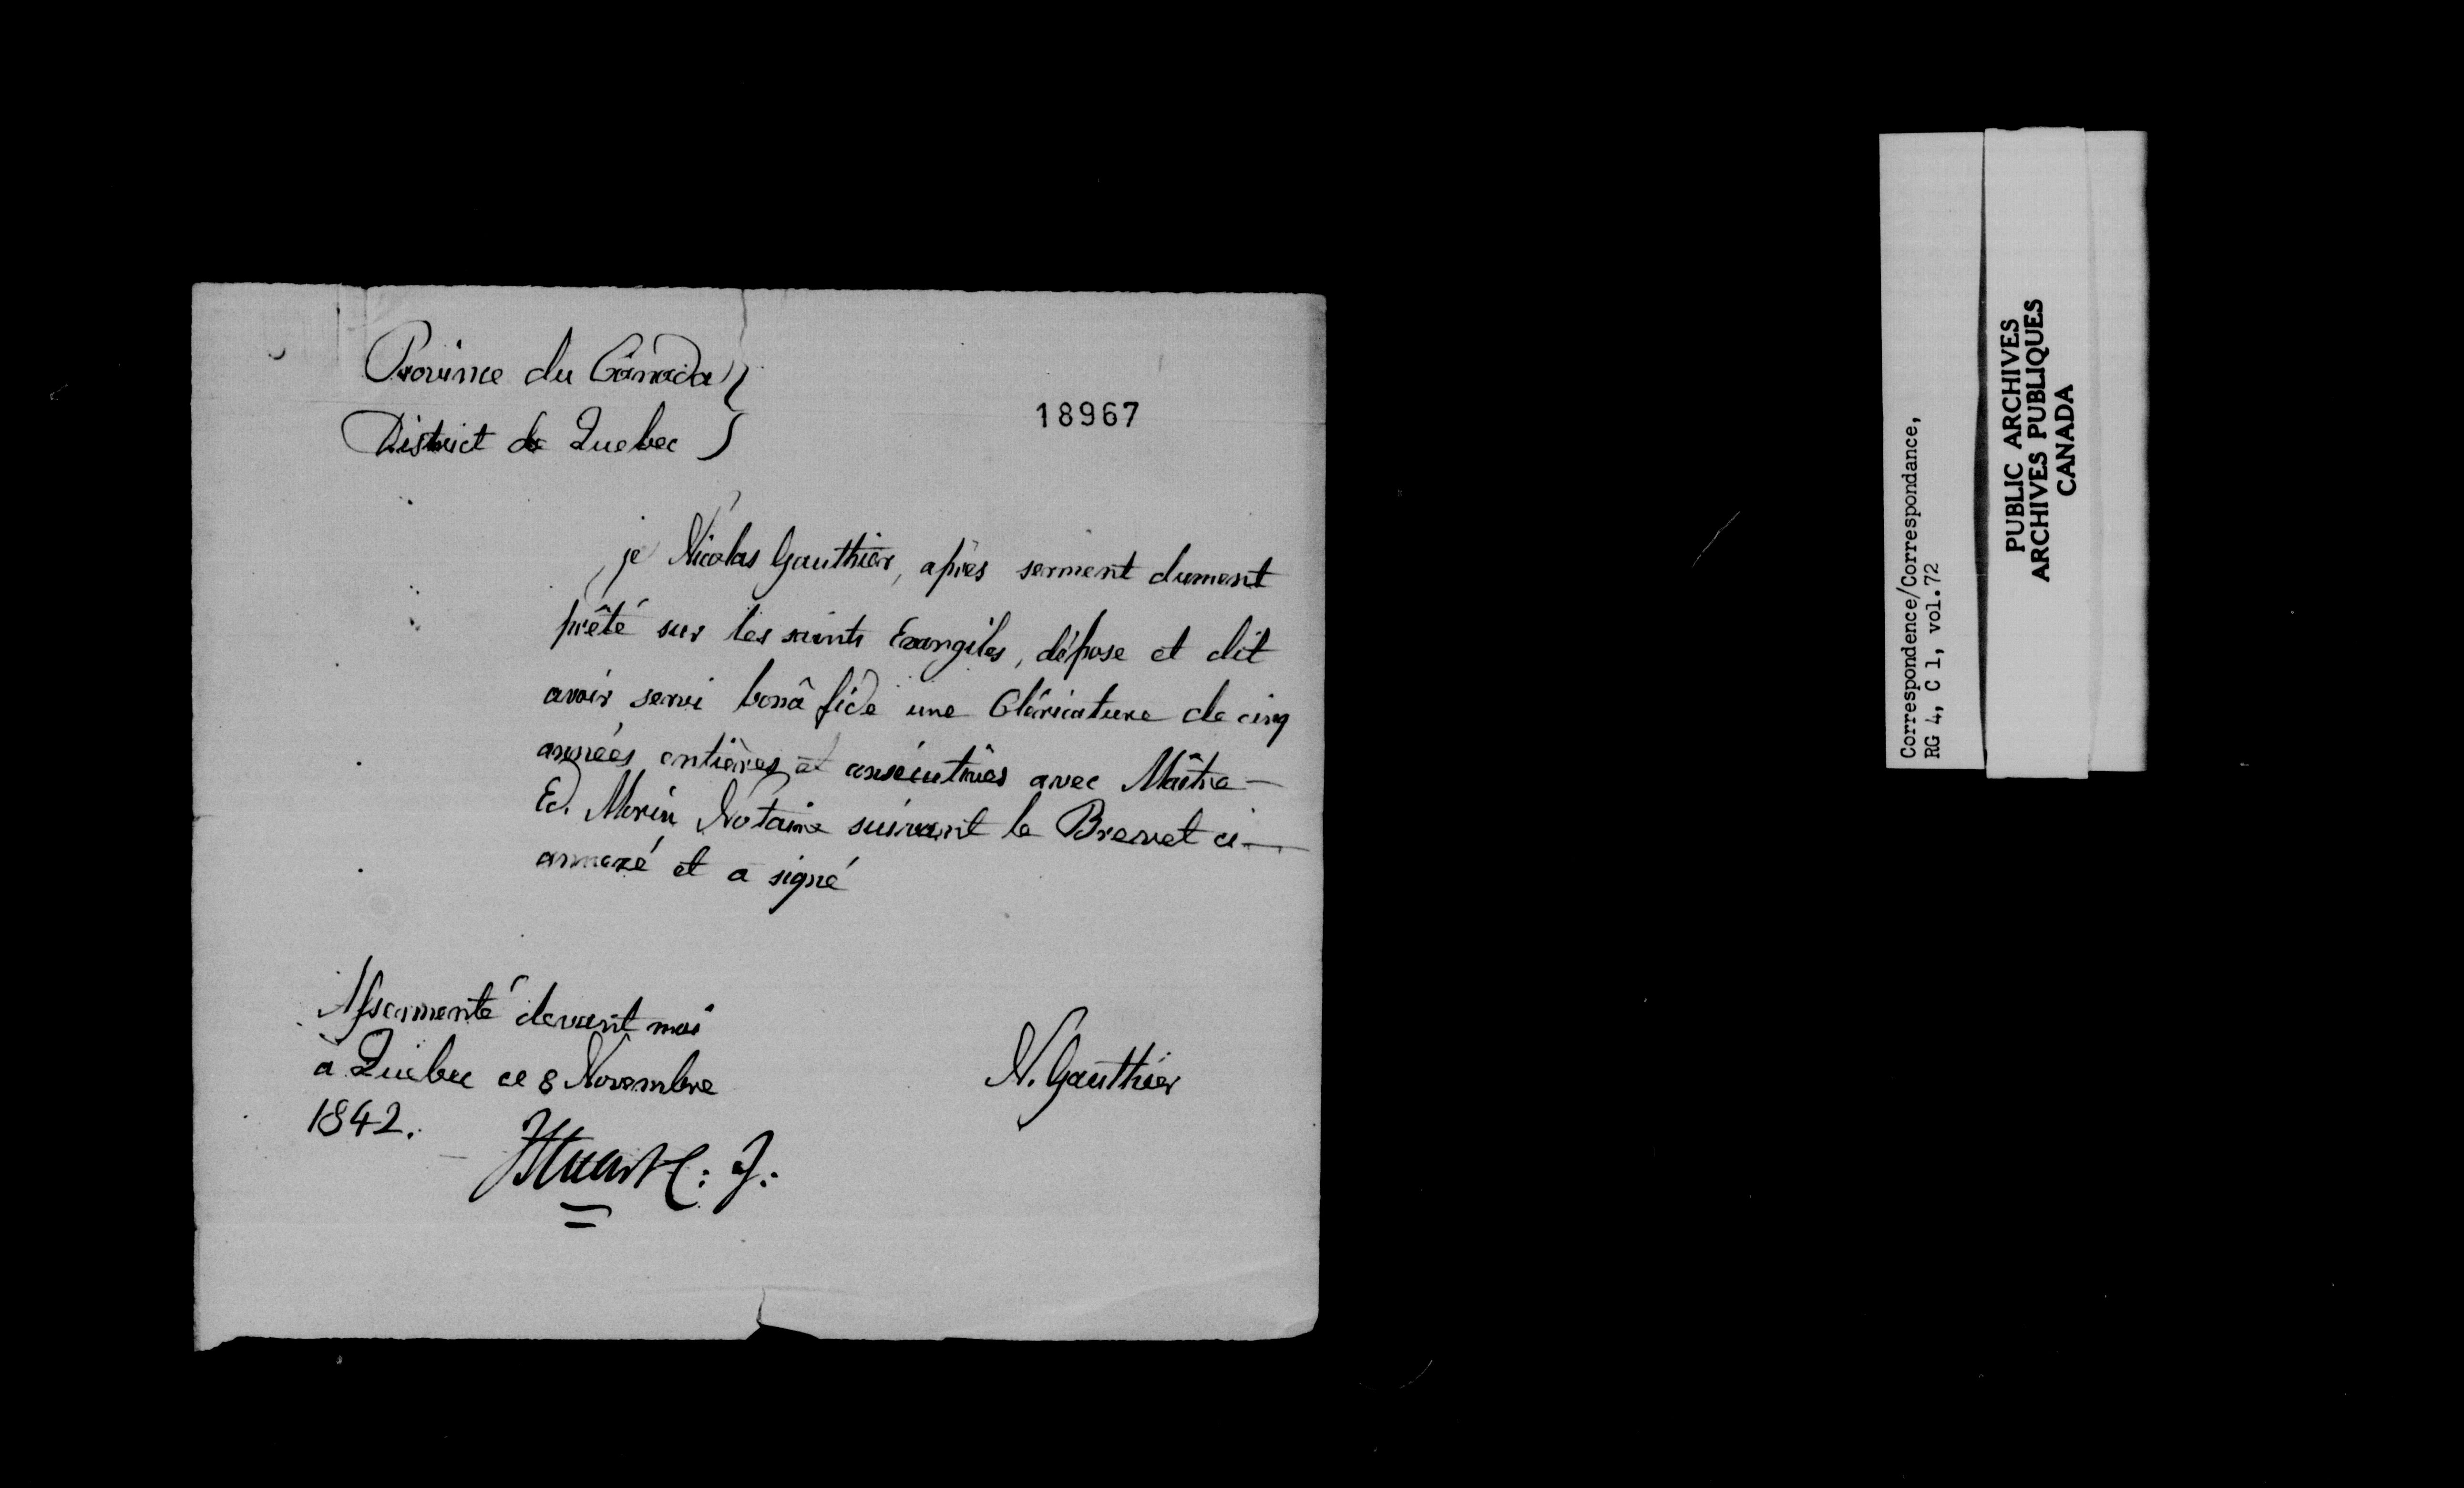 Province du Canada }
District de Quebec }
18967
je Nicolas Gauthier, après serment dument
prêté sur les saints Evangiles, dépose et dit
avoir servi bonâ fide une Cléricature de cinq
années entières et consécutives avec Maître —
Ed. Morin Notaire suivant le Brevet ci —
annexé et a signé
Assermenté devant moi
à Québec ce 8 Novembre
1842.
N. Gauthier
JStuart C: J:
Correspondence/Correspondance,
RG 4, C 1, vol.72
PUBLIC ARCHIVES
ARCHIVES PUBLIQUES
CANADA